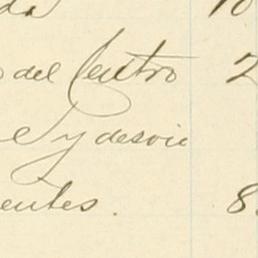 da 10
del Centro 2
e y desvie
entes. 8